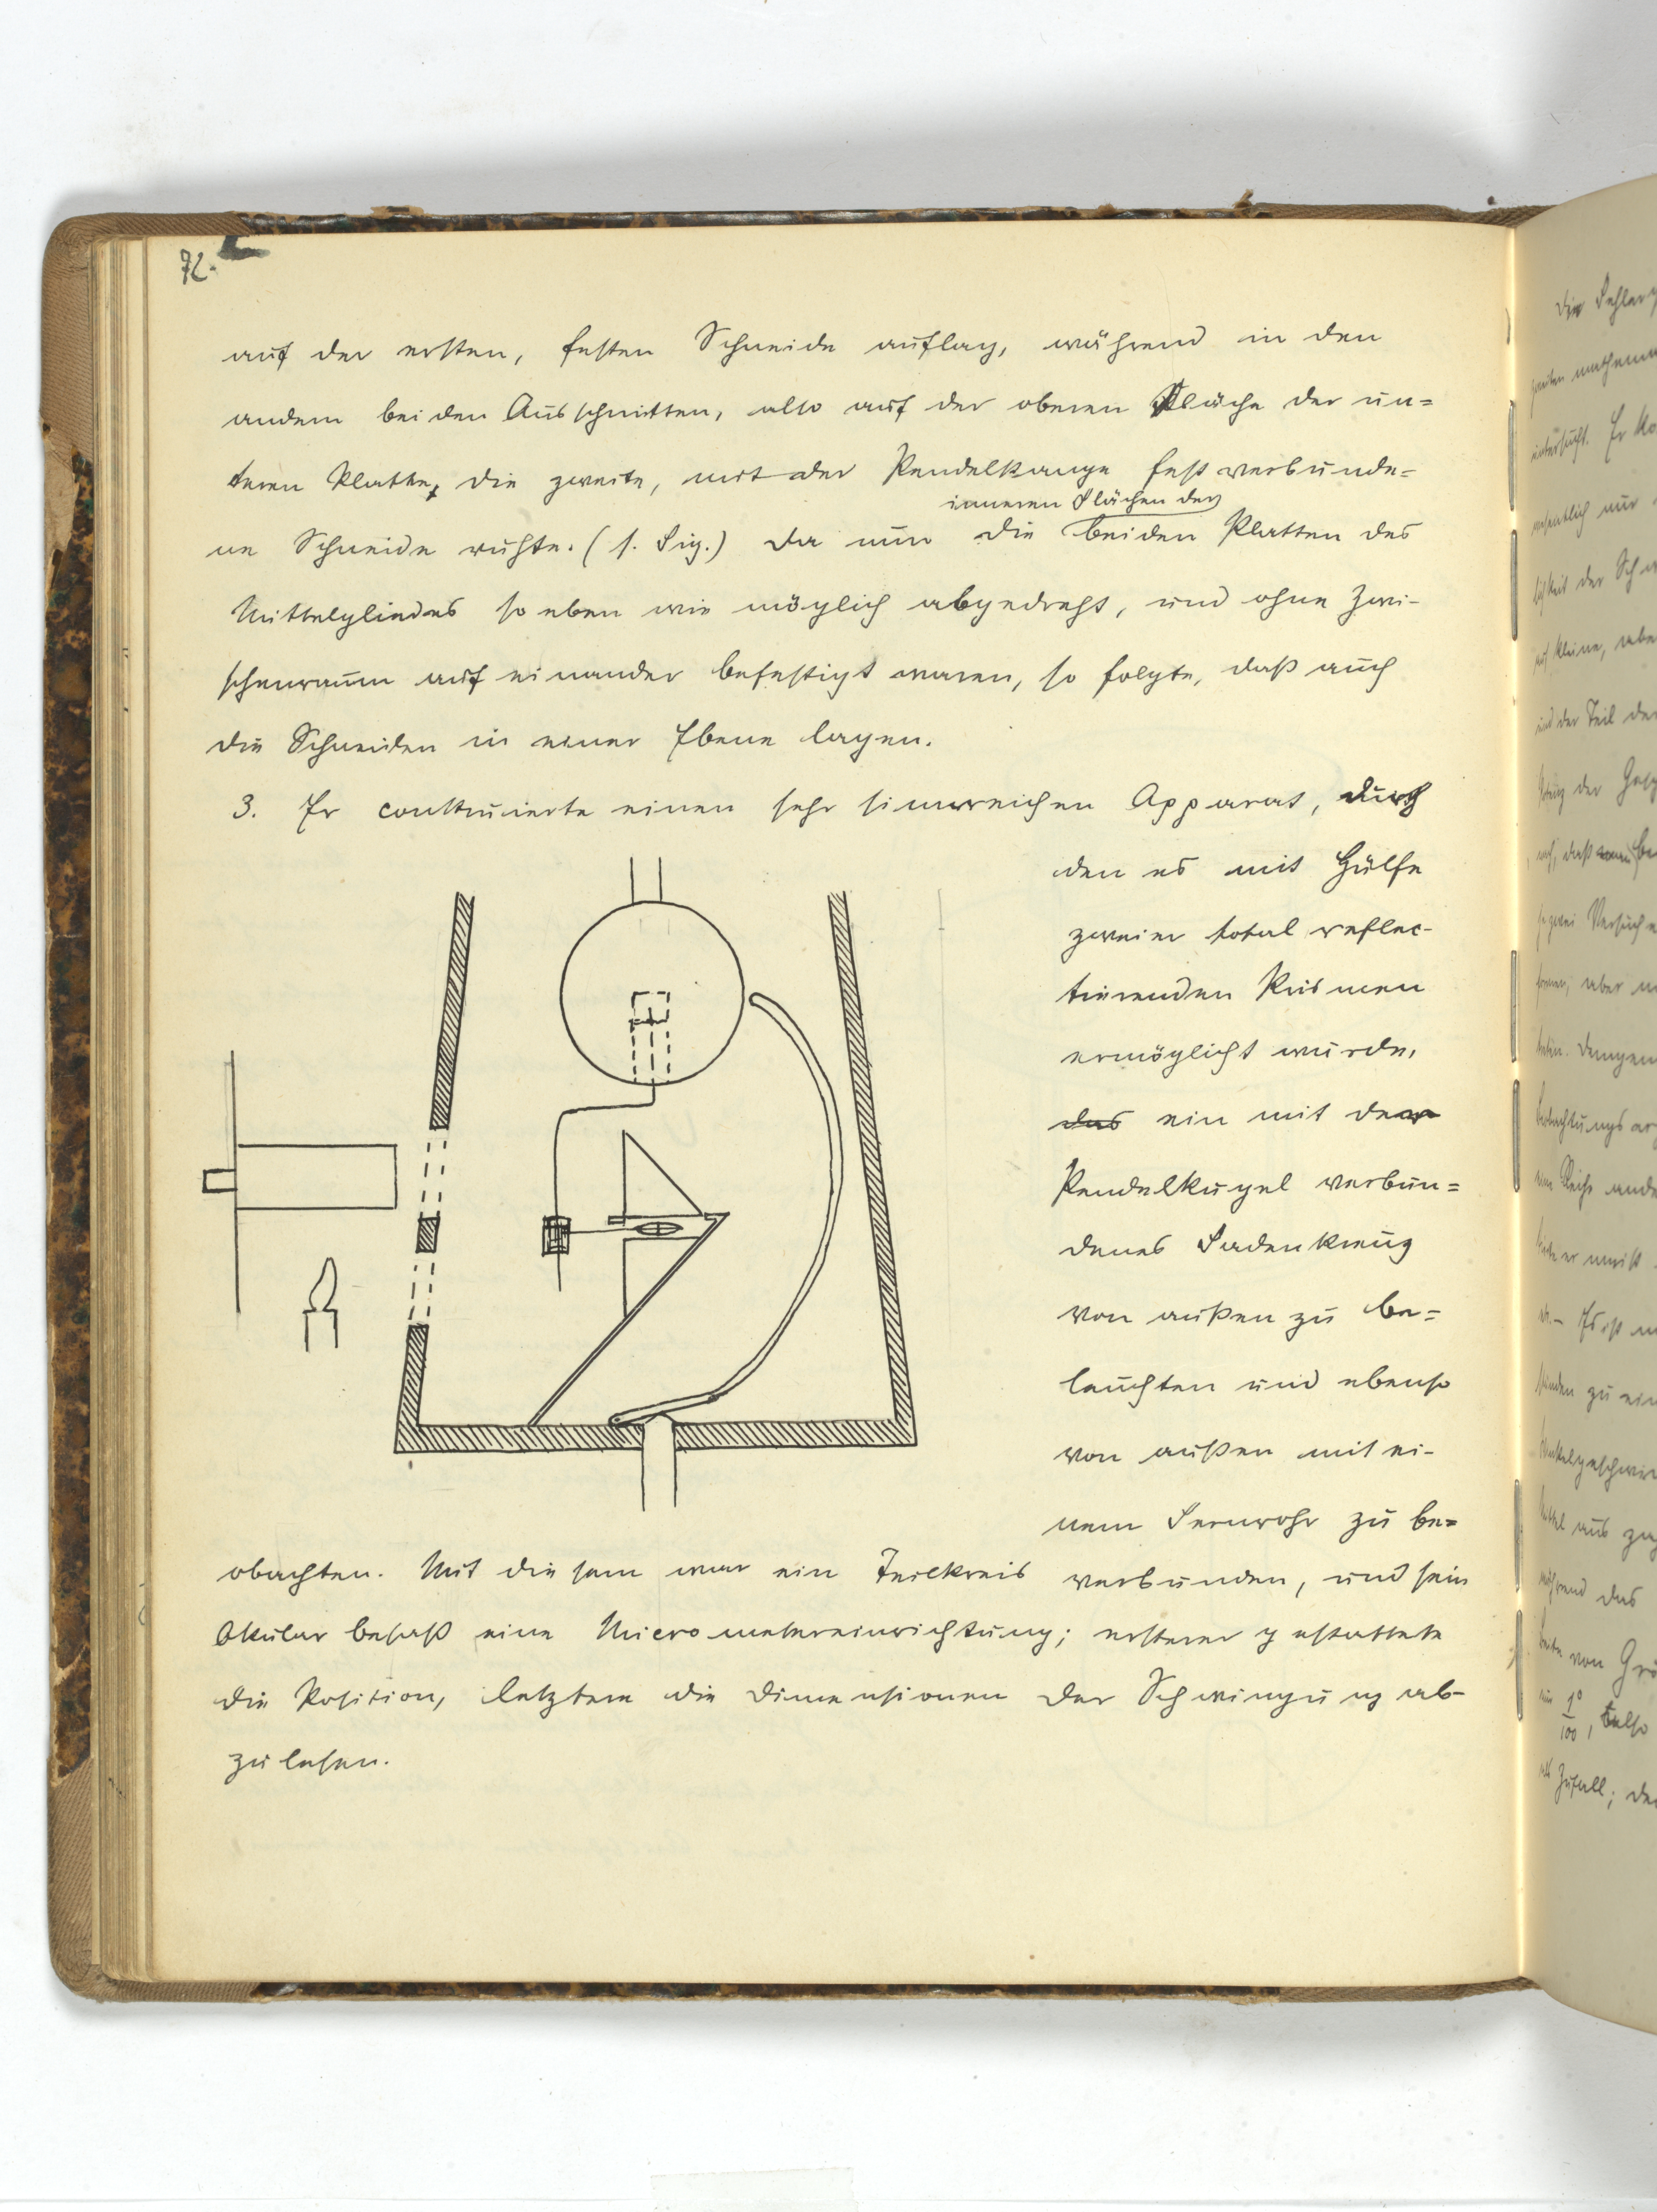 72.
auf der ersten, festen Schneide auflag, während in den
andern beiden Ausschnitten, also auf der oberen Fläche der un=
teren Platte, die zweite, mit der Pendelstange fest verbunde=
inneren Flächen der
ne Schneide ruhte. (s. Fig.) Da nun die beiden Platten des
Mittelgliedes so eben wie möglich abgedreht, und ohne Zwi-
schenraum auf einander befestigt waren, so folgte, daß auch
die Schneiden in einer Ebene lagen.
3. Er construierte einen sehr sinnreichen Apparat, durch
den es mit Hülfe
zweier total reflec-
tierenden Prismen
ermöglicht wurde,
das ein mit der
Pendelkugel verbun=
denes Fadenkreuz
von außen zu be=
leuchten und ebenso
von außen mit ei-
nem Fernrohr zu be=
obachten. Mit diesem war ein Teilkreis verbunden, und sein
Okular besaß eine Micrometereinrichtung; ersterer gestattete
die Position, letztere die Dimensionen der Schwingung ab-
zulesen.